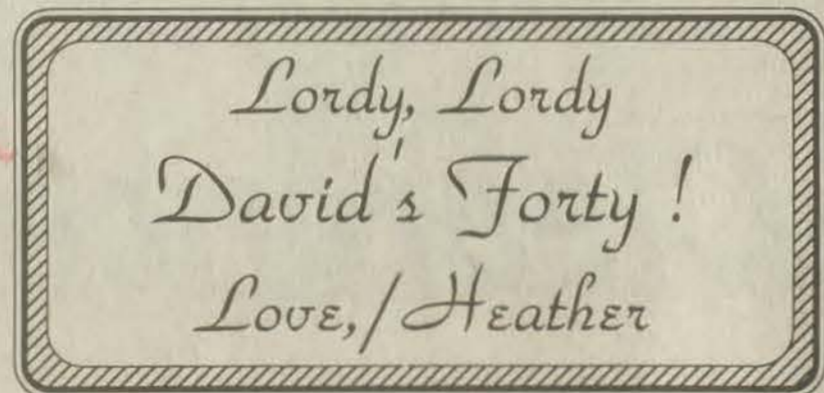 Lordy, Lordy
David's Forty !
Love, Heather